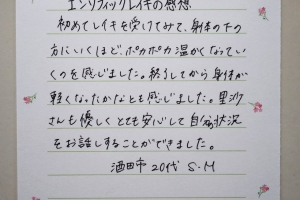 エンソフィックレイキの感想
初めてレイキを受けてみて、身体の下の
方にいくほど、ポカポカ温かくなってい
くのを感じました。終了してから身体が
軽くなったかなとも感じました。里沙
さんも優しくとても安心して自分の状況
をお話しすることができました。
酒田市 20代 S.M